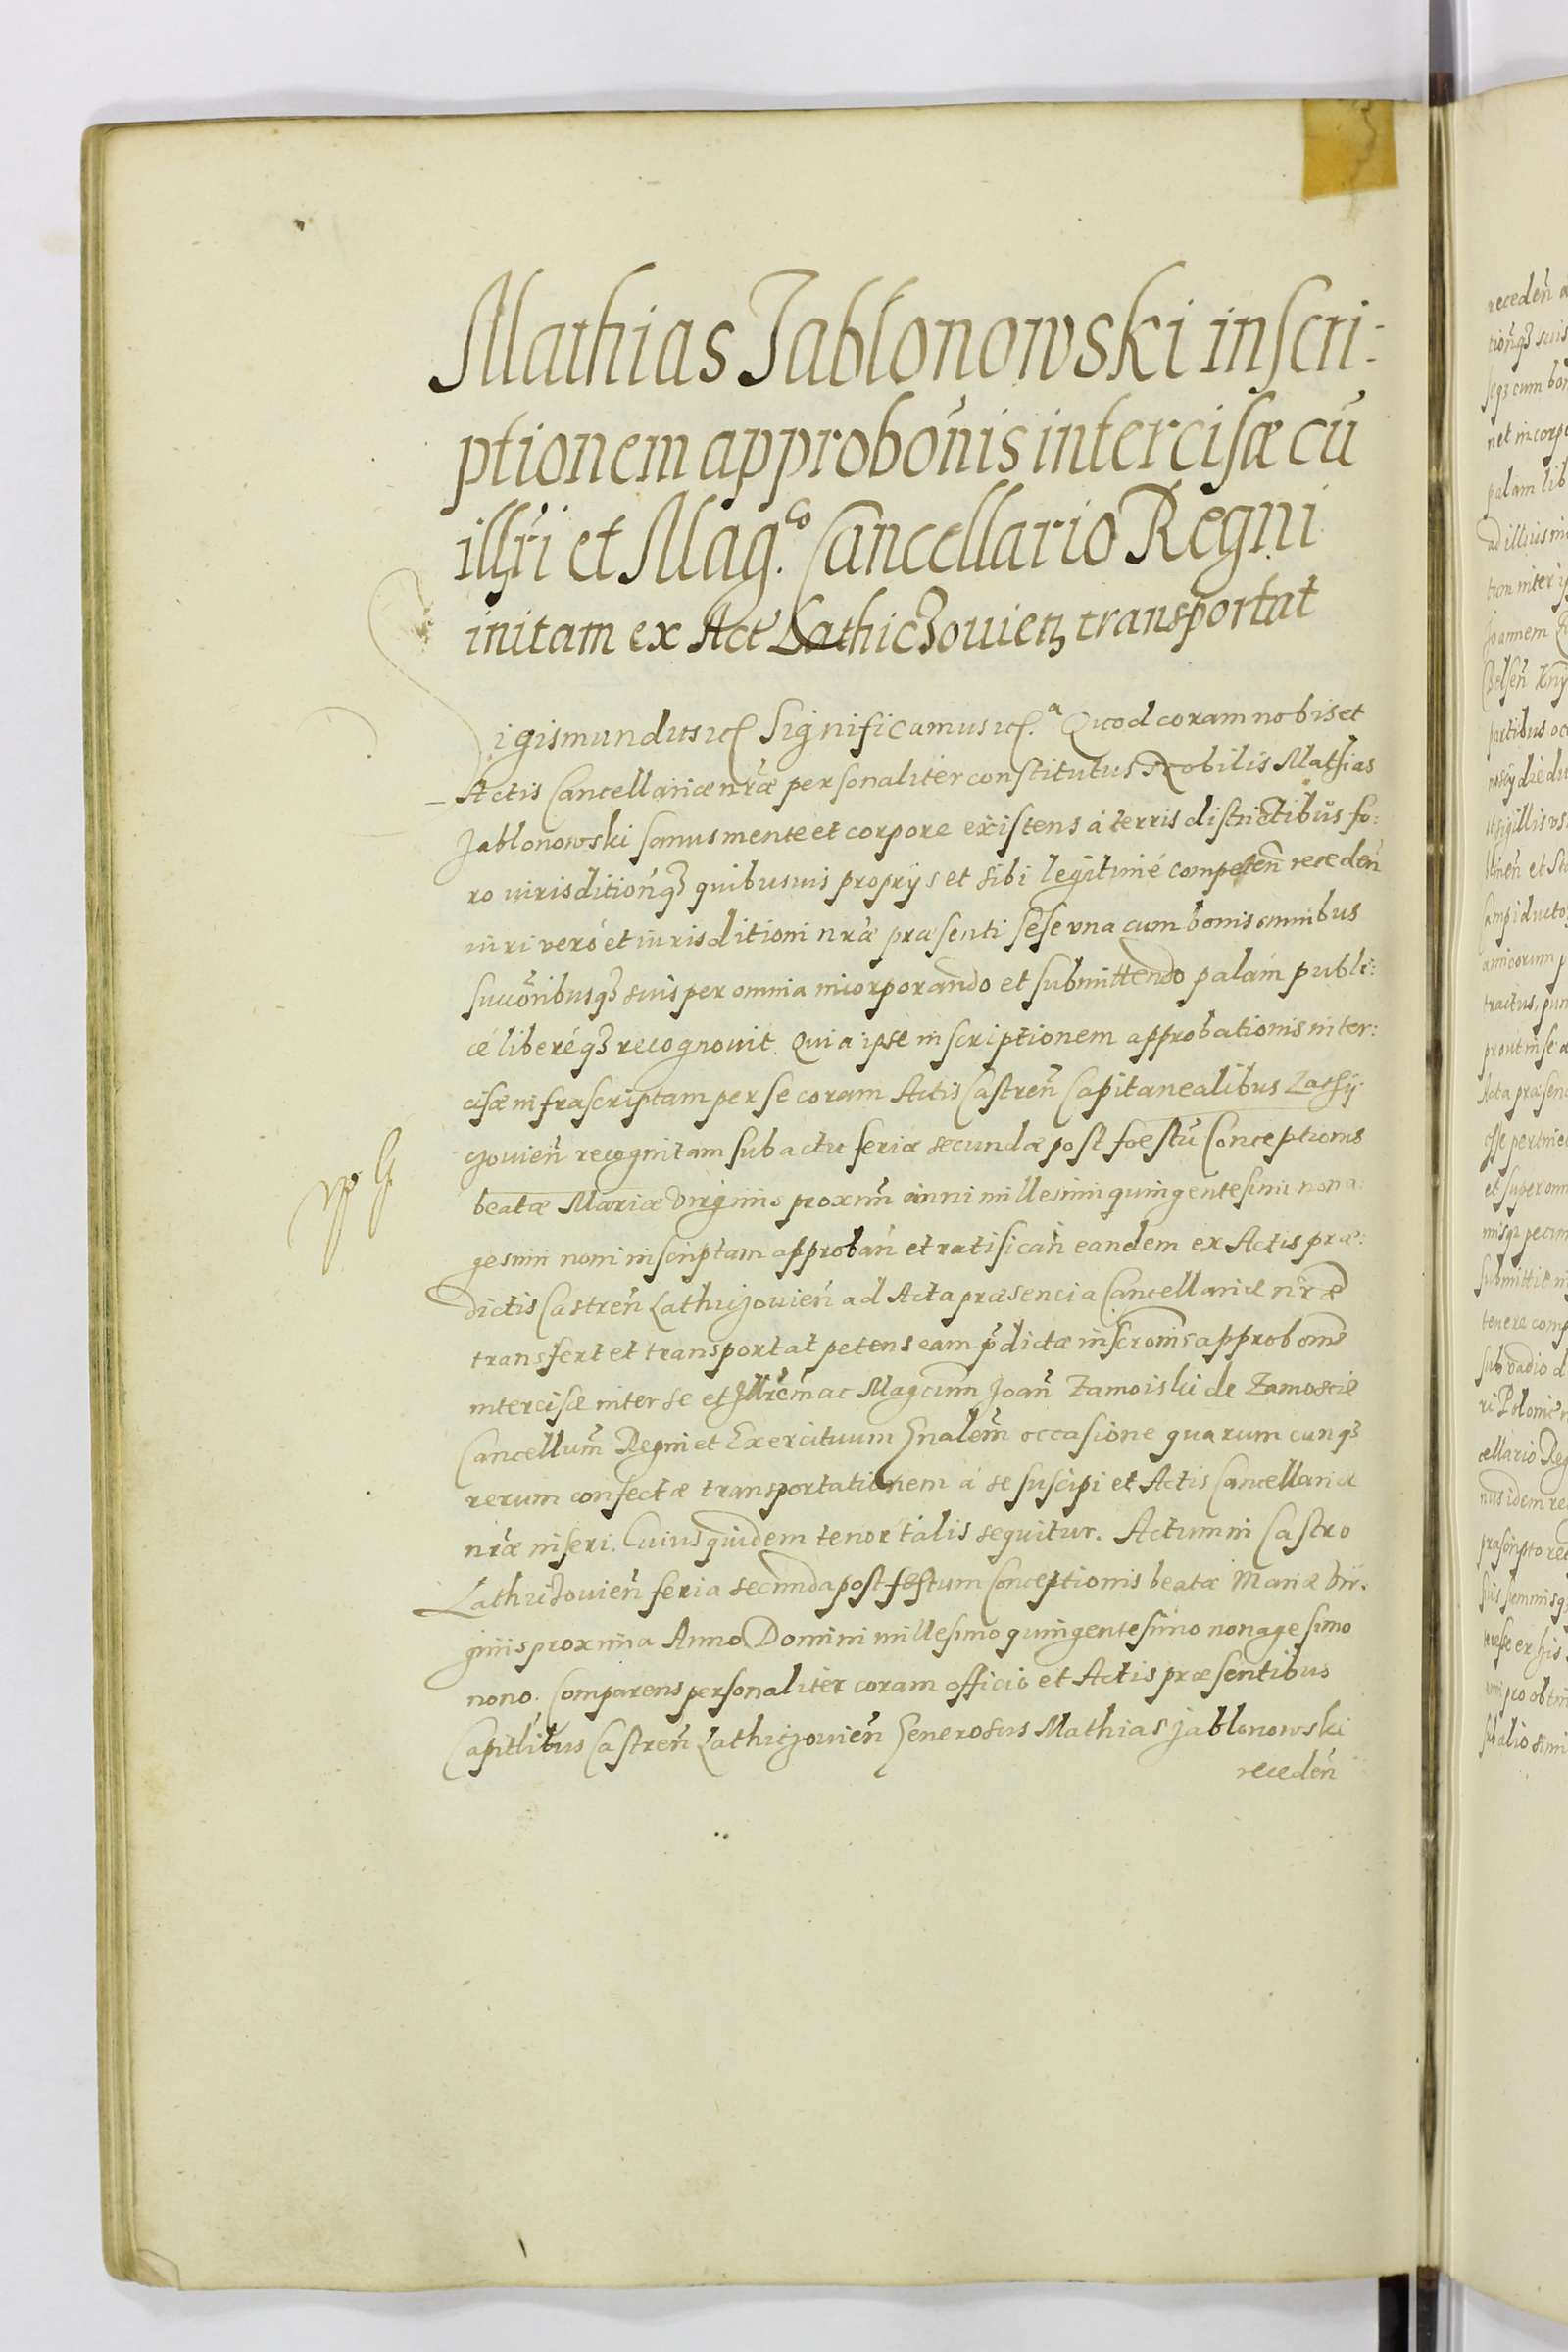 Mathias Jablonowski inscri-
ptionem approboñis intercisæ cũ
illr̃i et Mag.co Cancellario Regni
initam ex Act Lathiczouien transportat
Sigismundus etc Significamus etc.a Quod coram nobis et
Actis Cancellariæ nr̃æ personaliter constitutus Nobilis Mathias
Jablonowski sanus mente et corpore existens à terris districtibus fo:
ro iurisditionq3 quibusuis proprijs et sibi legitimé competeñ recedeñ
iuri veró et iurisditioni nr̃æ præsenti sese vna cum bonis omnibus
succõribusq3 suis per omnia incorporando et submittendo palám publi:
cé liberéq3 recognouit. Quia ipse inscriptionem approbationis inter:
cisæ infrascriptam per se coram Actis Castreñ Capitanealibus Lathy
czouieñ recognitam sub actu feriæ secundæ post foestũ Conceptionis
beatæ Mariæ Virginis proximi anni millesimi quingentesimi nona:
gesimi noni inscriptam approbañ et ratificañ eandem ex Actis præ:
dictis Castreñ Lathiczouieñ ad Acta præsencia Cancellariæ nr̃æ
transfert et transportat petens eam p̃dictæ inscrõnis approbõnis
intercisæ inter se et Illrẽm ac Magcum Joañ Zamoiski de Zamoscie
Cancellum̃ Regni et Exercituum Gnalem̃ occasione quarumcunq3
rerum confectæ transportationem á se suscipi et Actis Cancellariæ
nr̃æ inseri. Cuius quidem tenor talis sequitur. Actum in Castro
Lathiczouieñ feria secunda post festum Conceptionis beatæ Mariæ Vir.
ginis proxima Anno Domini millesimo quingentesimo nonagesimo
nono. Comparens personaliter coram officio et Actis præsentibus
Capitlibus Castreñ Lathiczouieñ Generosus Mathias Jablonowski
recedeñ